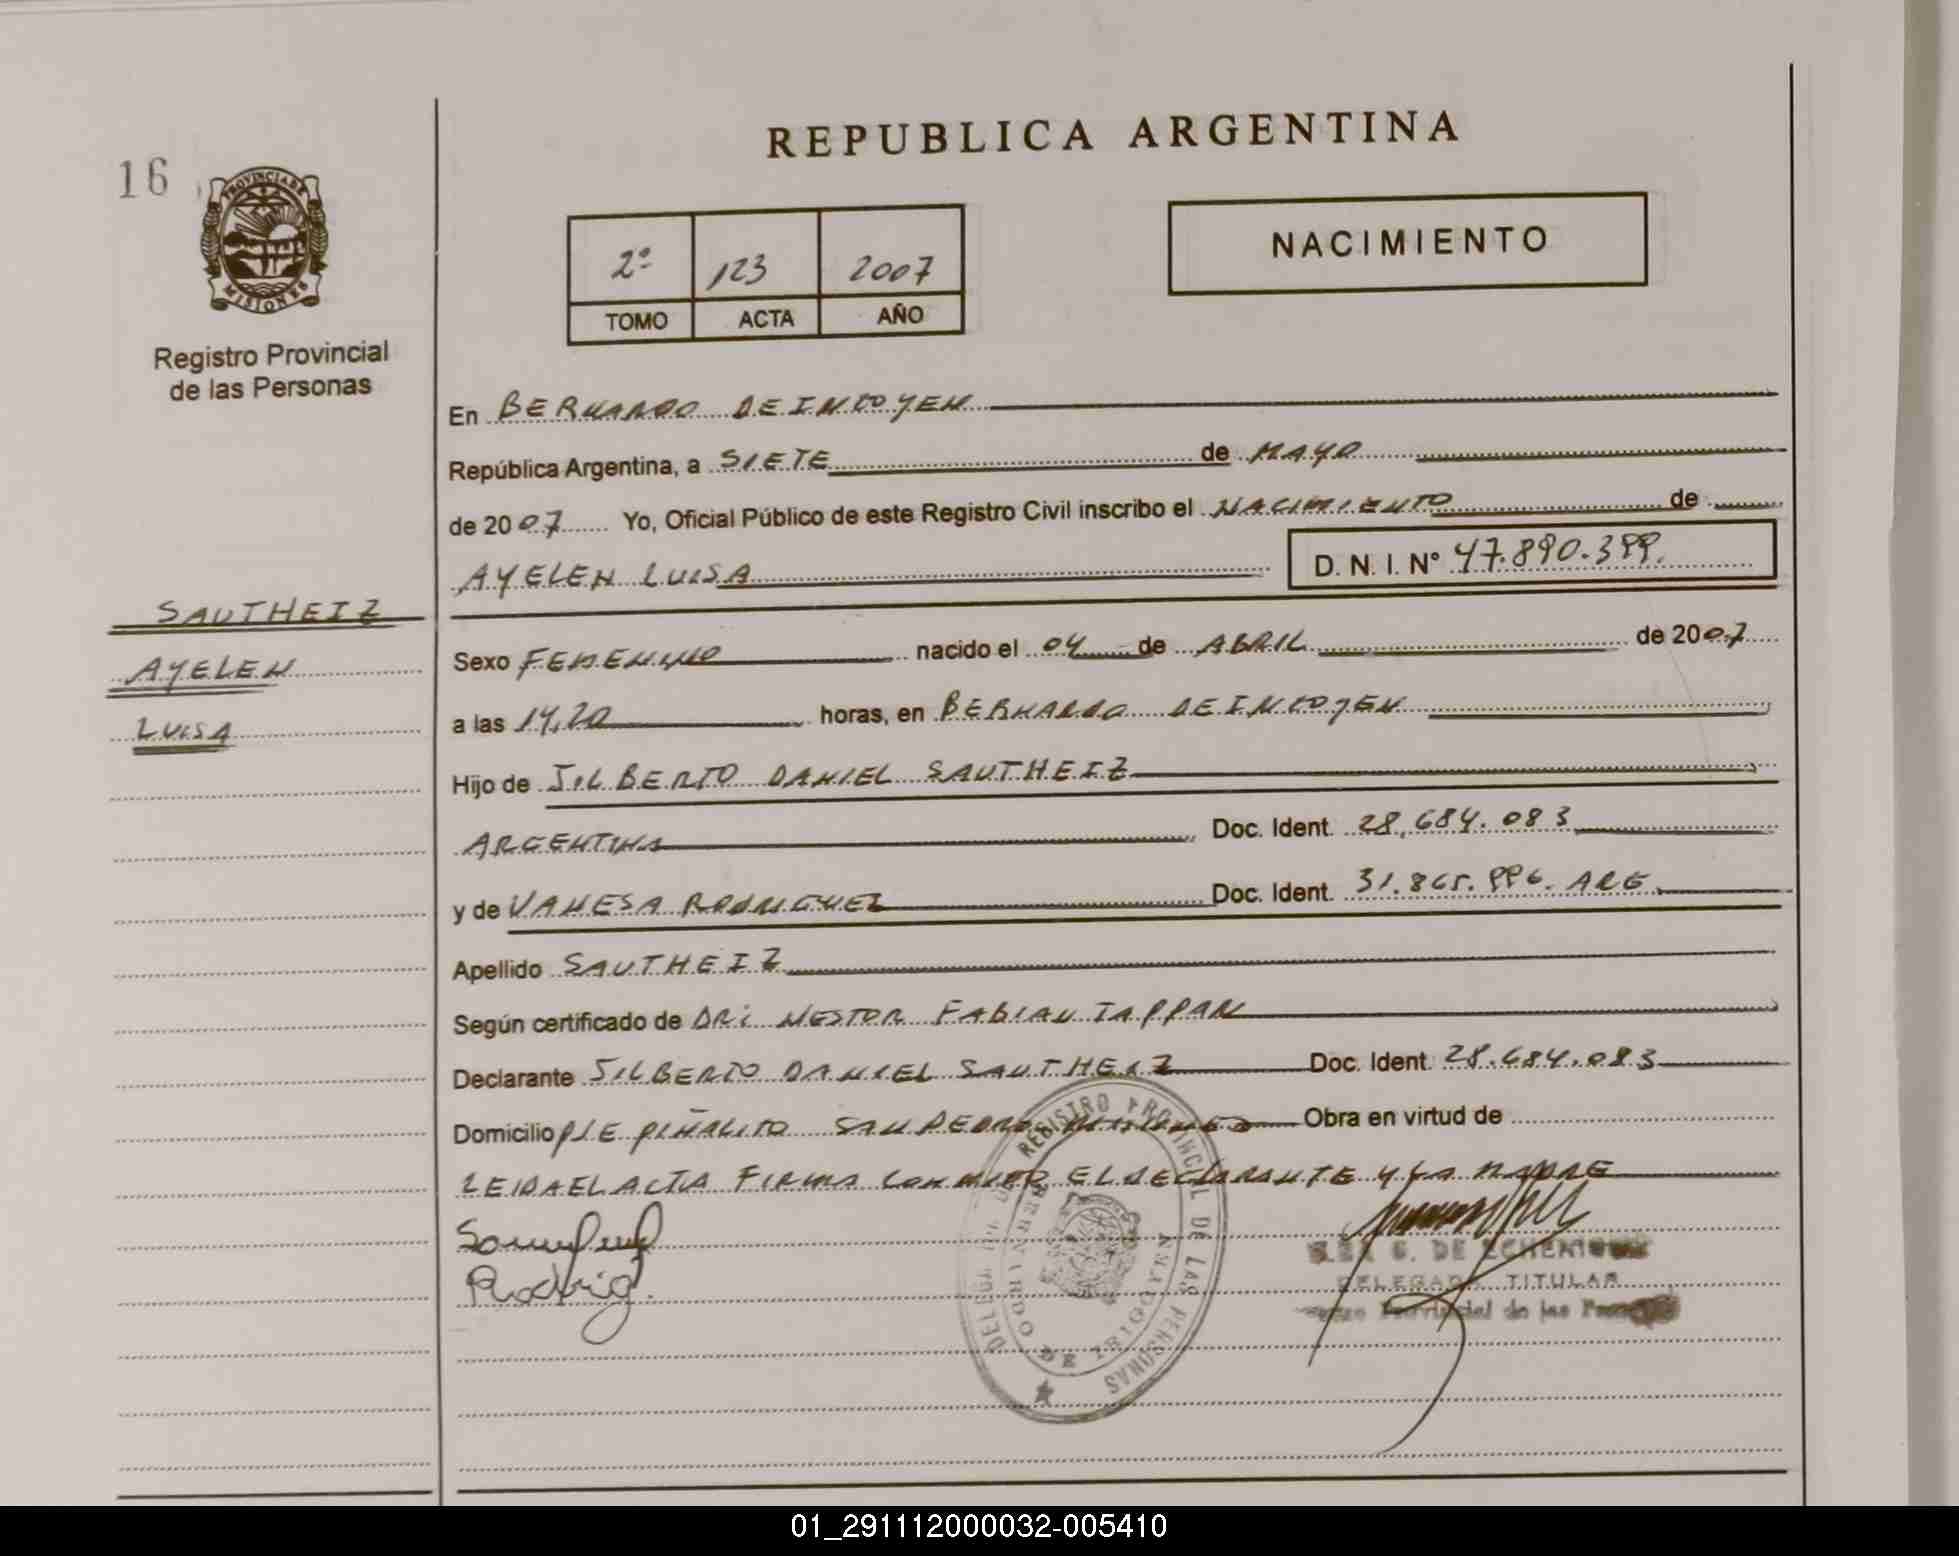 REPUBLICA ARGENTINA
16
PROVINCIA DE
MISIONES
Registro Provincial
de las Personas
2º 123 2007
TOMO ACTA AÑO
NACIMIENTO
En BERNARDO DE IRIGOYEN
República Argentina, a SIETE de MAYO
de 2007 Yo, Oficial Público de este Registro Civil inscribo el NACIMIENTO de
AYELEN LUISA D. N. I. Nº 47.890.399.
SAUTHEIZ
AYELEN
LUISA
Sexo FEMENINO nacido el 04 de ABRIL de 2007
a las 14,20 horas, en BERNARDO DE IRIGOYEN
Hijo de JILBERTO DANIEL SAUTHEIZ
ARGENTINA Doc. Ident. 28.684.083
y de VANESA RODRIGUEZ Doc. Ident. 31.865.996. ARG.
Apellido SAUTHEIZ
Según certificado de DR: NESTOR FABIAN TAPPARI
Declarante JILBERTO DANIEL SAUTHEIZ Doc. Ident. 28.684.083
Domicilio PJE PIÑALITO SAN PEDRO MISIONES Obra en virtud de
LEIDA EL ACTA FIRMA CONMIGO EL DECLARANTE Y LA MADRE
Rodrig.
REGISTRO PROVINCIAL DE LAS PERSONAS
BERNARDO DE IRIGOYEN
DE ECHENIQUE
DELEGADA TITULAR
Provincial de las Personas
01_291112000032-005410